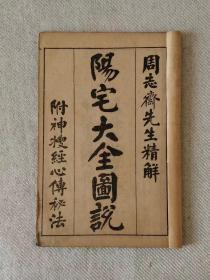 周志齋先生精解
陽宅大全圖說
附神搜經心傳祕法